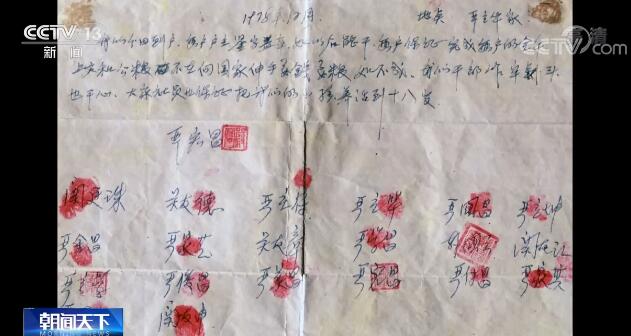 CCTV 13
新闻
CCTV.com
高清
1978年12月 地点 严立华家
我们分田到户，每户户主签字盖章，如以后能干，每户保证完成每户的全年
上交和公粮，不在向国家伸手要钱要粮。如不成，我们干部作牢
也干心，大家社员也保证把我们的小孩养活到十八岁
严宏昌
关廷珠 关友德 严立符 严立华 严国昌 严立坤
严金昌 严家芝 关友章 严学昌 关友江
严立学 严俊昌 严美昌 严宏昌 严付昌 严家其
关友申
朝闻天下